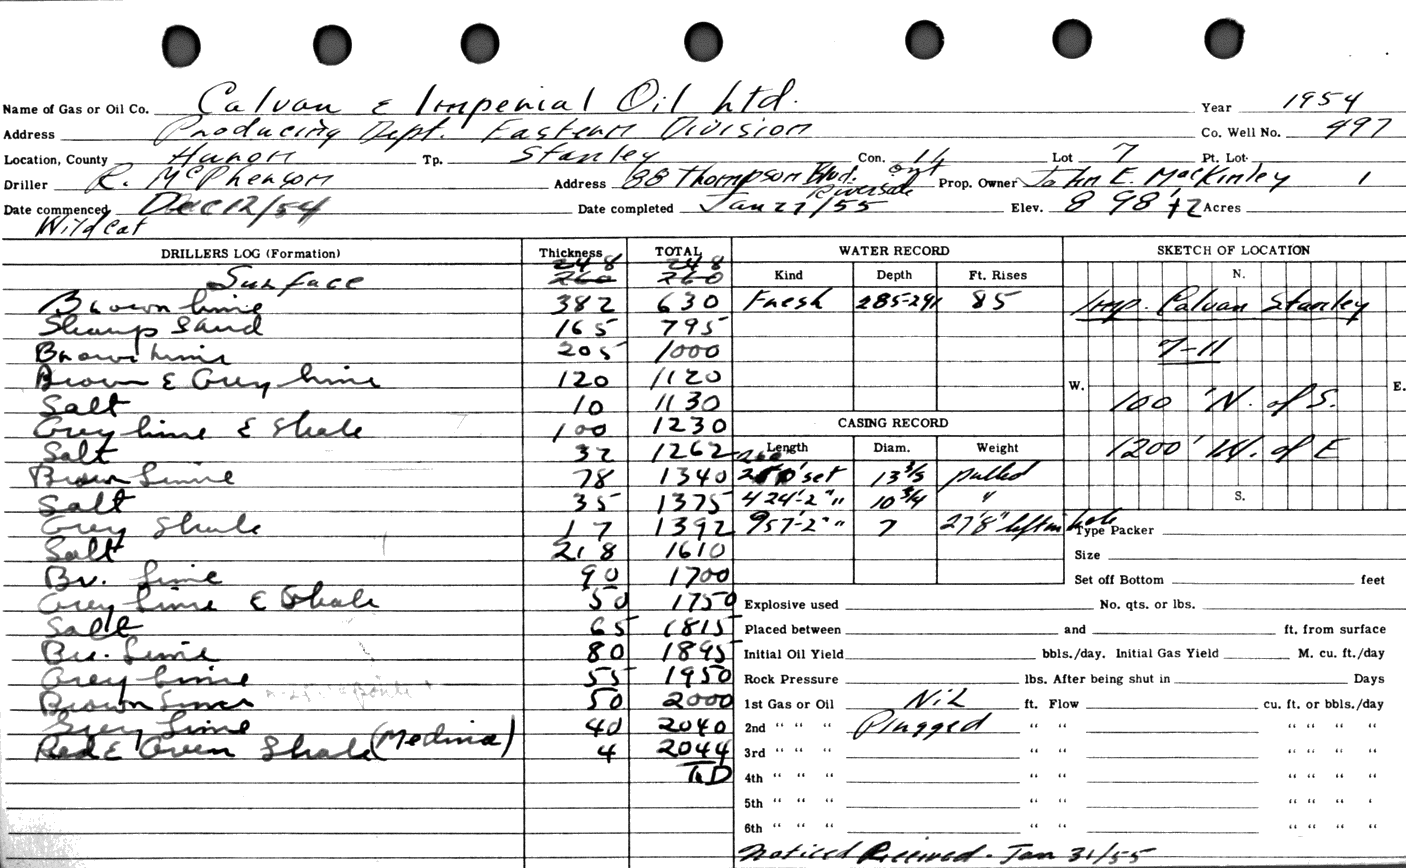 Name of Gas or Oil Co. Calvan & Imperial Oil Ltd. Year 1954
Address Producing Dept. Eastern Division Co. Well No. 497
Location, County Huron Tp. Stanley Con. 11 Lot 7 Pt. Lot
Driller R. McPherson Address 88 Thompson Blvd. Riverside Ont Prop. Owner John E. MacKinley 1
Date commenced Dec 12/54 Date completed Jan 27/55 Elev. 898.12 Acres
Wildcat
DRILLERS LOG (Formation) Thickness TOTAL WATER RECORD SKETCH OF LOCATION
248 248
Surface 260 260 Kind Depth Ft. Rises N.
Brown lime 382 630 Fresh 285-291 85 Imp. Calvan Stanley
Sharp Sand 165 795
Brown lime 205 1000 7-11
Brown & Grey lime 120 1120 W. E.
Salt 10 1130 100' N. of S.
Grey lime & Shale 100 1230 CASING RECORD
Salt 32 1262 Length Diam. Weight 1200' W. of E
Brown Lime 78 1340 260' set 13 3/8 pulled
Salt 35 1375 424'-2" " 10 3/4 " S.
Grey Shale 17 1392 957'-2" " 7 27'8" left in hole Type Packer
Salt 218 1610 Size
Br. Lime 90 1700 Set off Bottom feet
Grey Lime & Shale 50 1750 Explosive used No. qts. or lbs.
Salt 65 1815 Placed between and ft. from surface
Br. Lime 80 1895 Initial Oil Yield bbls./day. Initial Gas Yield M. cu. ft./day
Grey Lime 55 1950 Rock Pressure lbs. After being shut in Days
Brown Lime 50 2000 1st Gas or Oil Nil ft. Flow cu. ft. or bbls./day
Grey Lime 40 2040 2nd " " " Plugged " " " " "
Red & Green Shale (Medina) 4 2044 3rd " " " " " " " "
TD 4th " " " " " " " "
5th " " " " " " " '
6th " " " " " " " "
Noticed Received - Jan 31/55